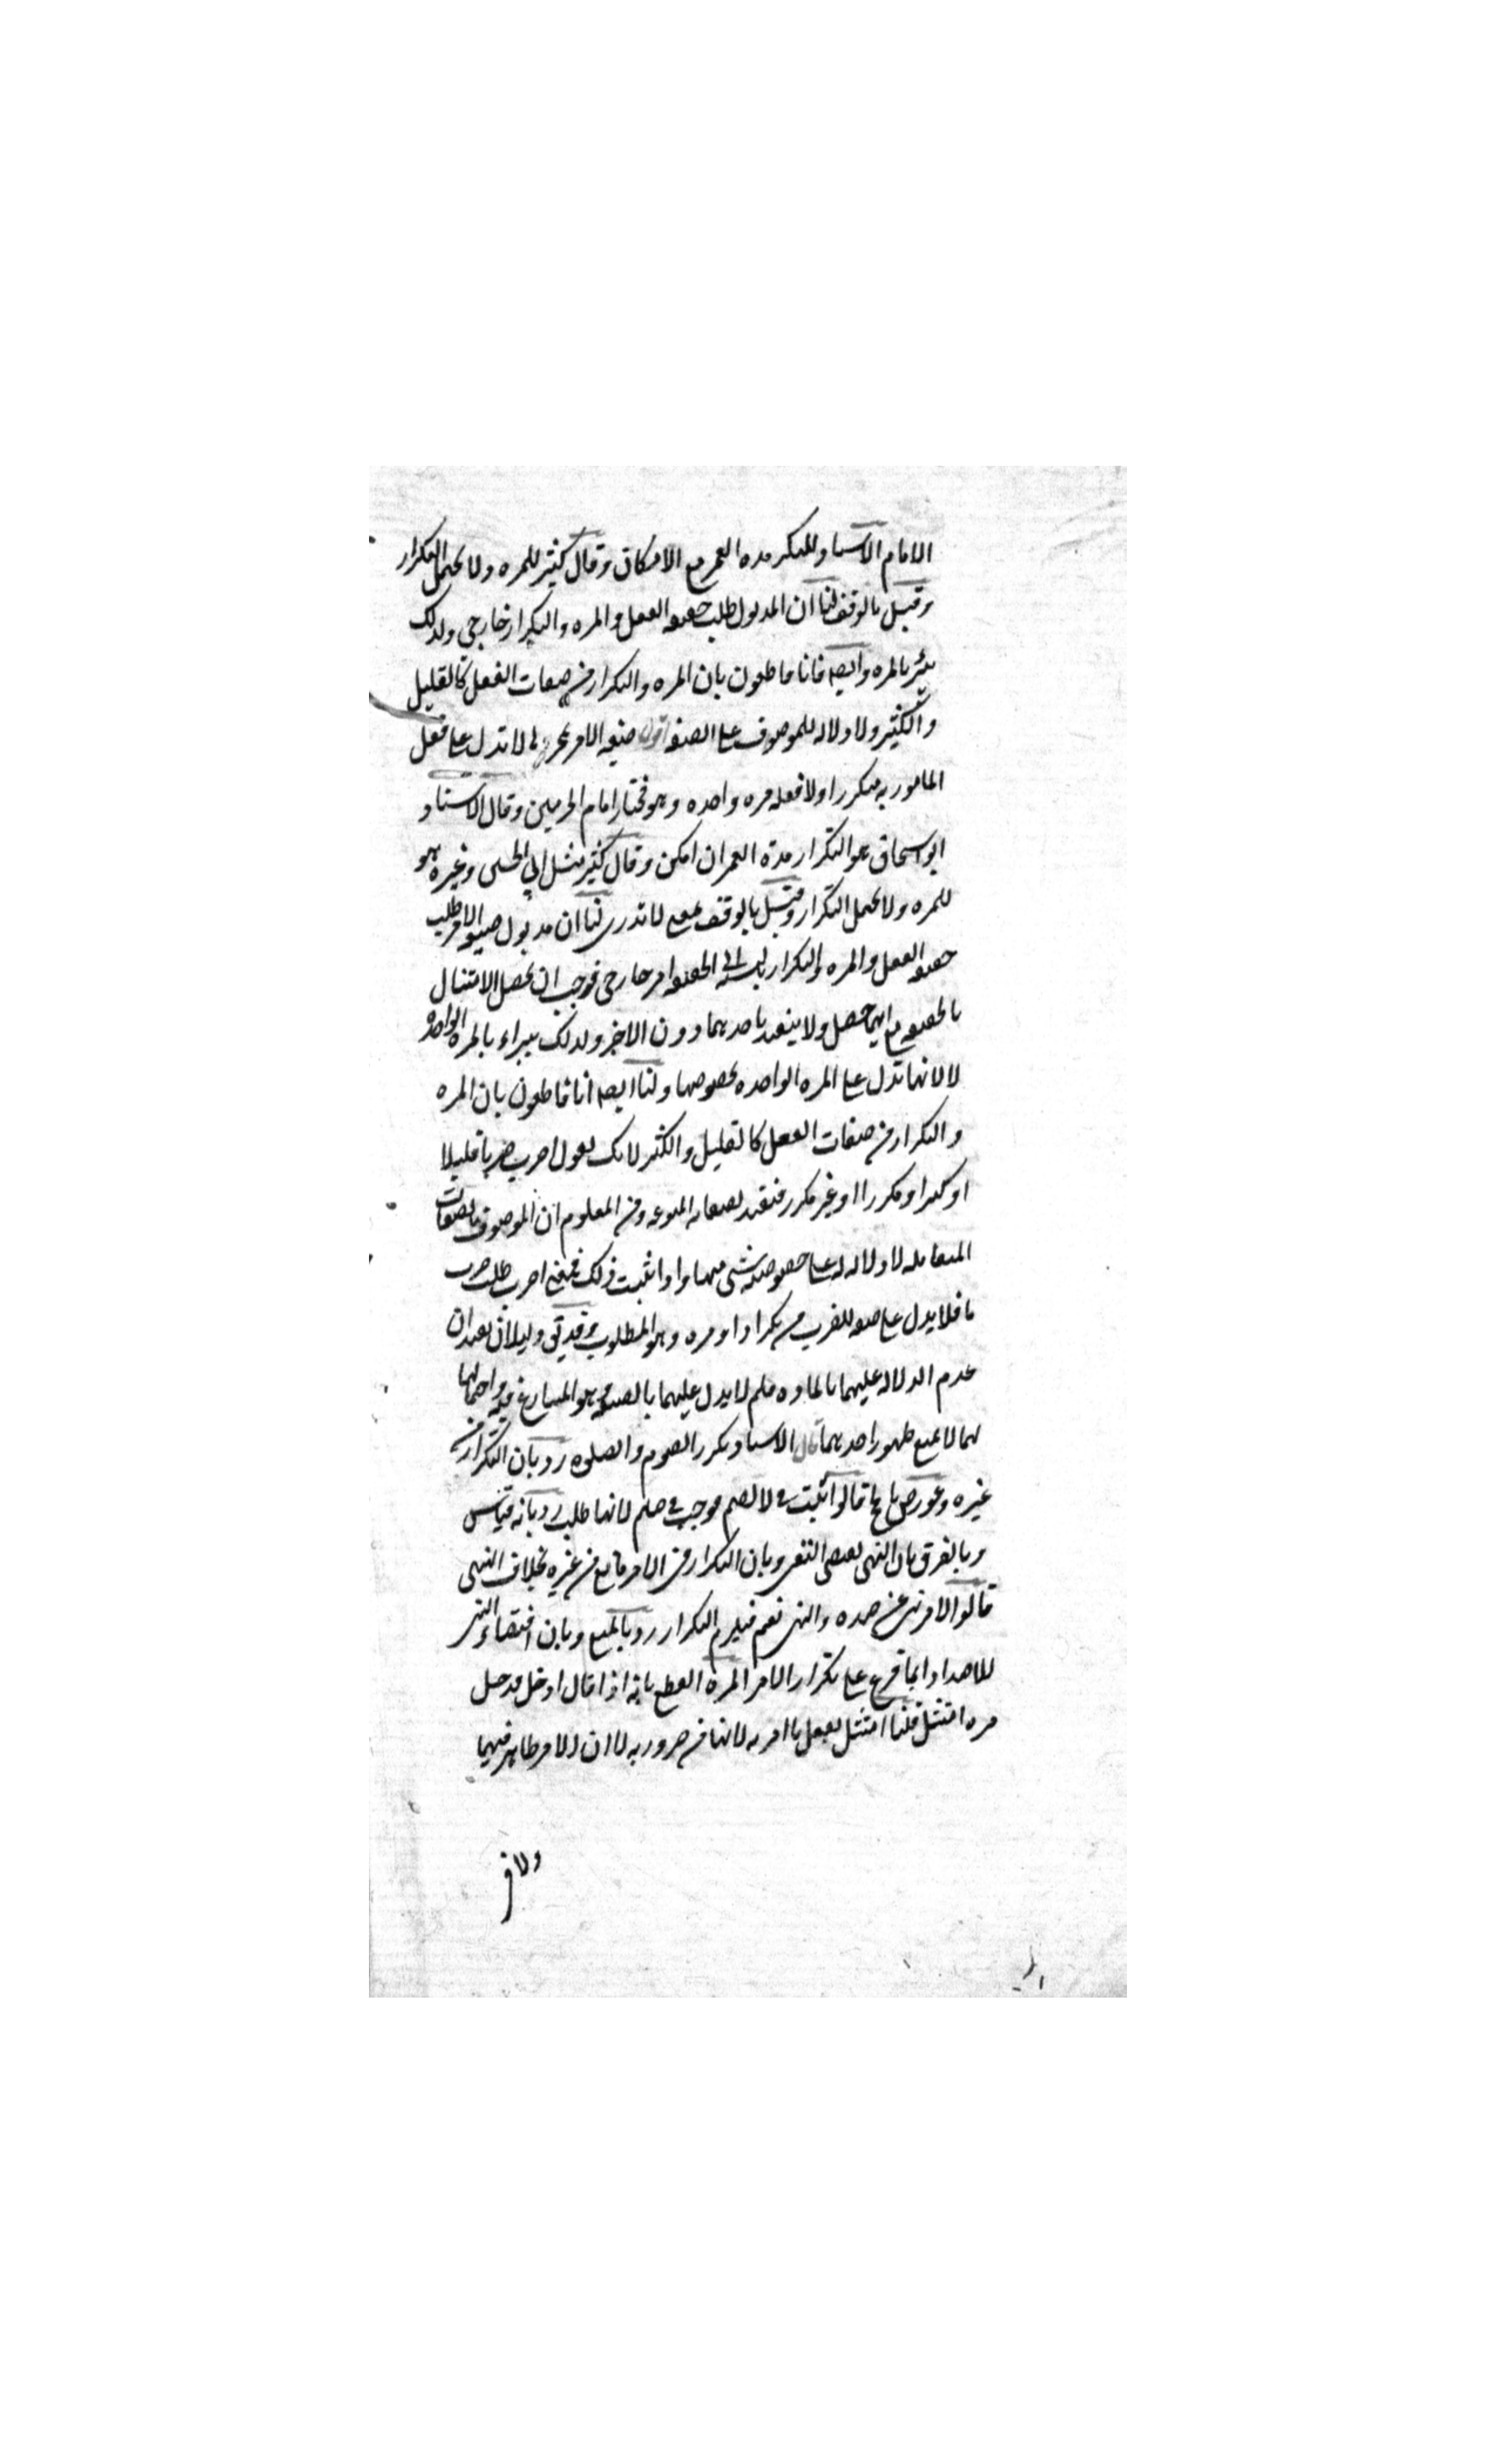 الامام الاستاد للتكرار مده العمر مع الامكان وقال كثير للمره ولا يحتمل التكرار
وقيل بالوقف لنا ان المدلول طلب حقيقه الفعل والمره والتكرار خارجي ولذلك
يبرئ بالمره وايضا فانا قاطعون بان المره والتكرار من صفات الفعل كالقليل
والكثير ولا دلاله للموصوف على الصفه اقول صيغه الامر بمجردها لا تدل على فعل
المامور به متكررا ولا فعله مره واحده وهو مختار امام الحرمين وقال الاستاد
ابو اسحاق هو التكرار مدة العمر ان امكن وقال كثير مثل ابي الحسين وغيره هو
للمره ولا يحتمل التكرار وقيل بالوقف بمعنى لا ندري لنا ان مدلول صيغه الامر طلب
حقيقه الفعل والمره والتكرار بالنسبه الى الحقيقه امر خارجي فوجب ان يحصل الامتثال
بالحقيقه مع ايهما حصل ولا يتقيد باحدهما دون الاخر ولذلك يبراء بالمره الواحده
لا لانها تدل على المره الواحده بخصوصها ولنا ايضا انا قاطعون بان المره
والتكرار من صفات الفعل كالقليل والكثير لانك تقول اضرب ضربا قليلا
او كثيرا ومكررا او غير مكرر فتقيد بصفاته المتنوعه ومن المعلوم ان الموصوف بالصفات
المتقابله لا دلاله له على خصوصيه شي منها واذا ثبت ذلك فمعنى اضرب طلب ضرب
ما فلا يدل على صفه للضرب من تكرار او مره وهو المطلوب وقد يق دليلان يفيدان
عدم الدلاله عليهما بالماده فلم لا يدل عليهما بالصيغه وهو المتنازع فيه واحتمالها
لهما لا يمنع ظهور احدهما قال الاستاد تكرر الصوم والصلوه رد بان التكرار من
غيره وعورض بالحج قالوا ثبت في لا تصم فوجب في صم لانها طلب رد بانه قياس
وبالفرق بان النهي يقتضي النفي وبان التكرار في الامر مانع من غيره بخلاف النهي
قالوا الامر نهي عن ضده والنهي نعم فيلزم التكرار رد بالمنع وبان اقتضاء النهي
للاضداد دايما فرع على تكرار الامر المره القطع بانه اذا قال ادخل فدخل
مره امتثل قلنا امتثل لفعل ما امر به لانها من ضروريه لا ان الامر ظاهر فيها
ولا في